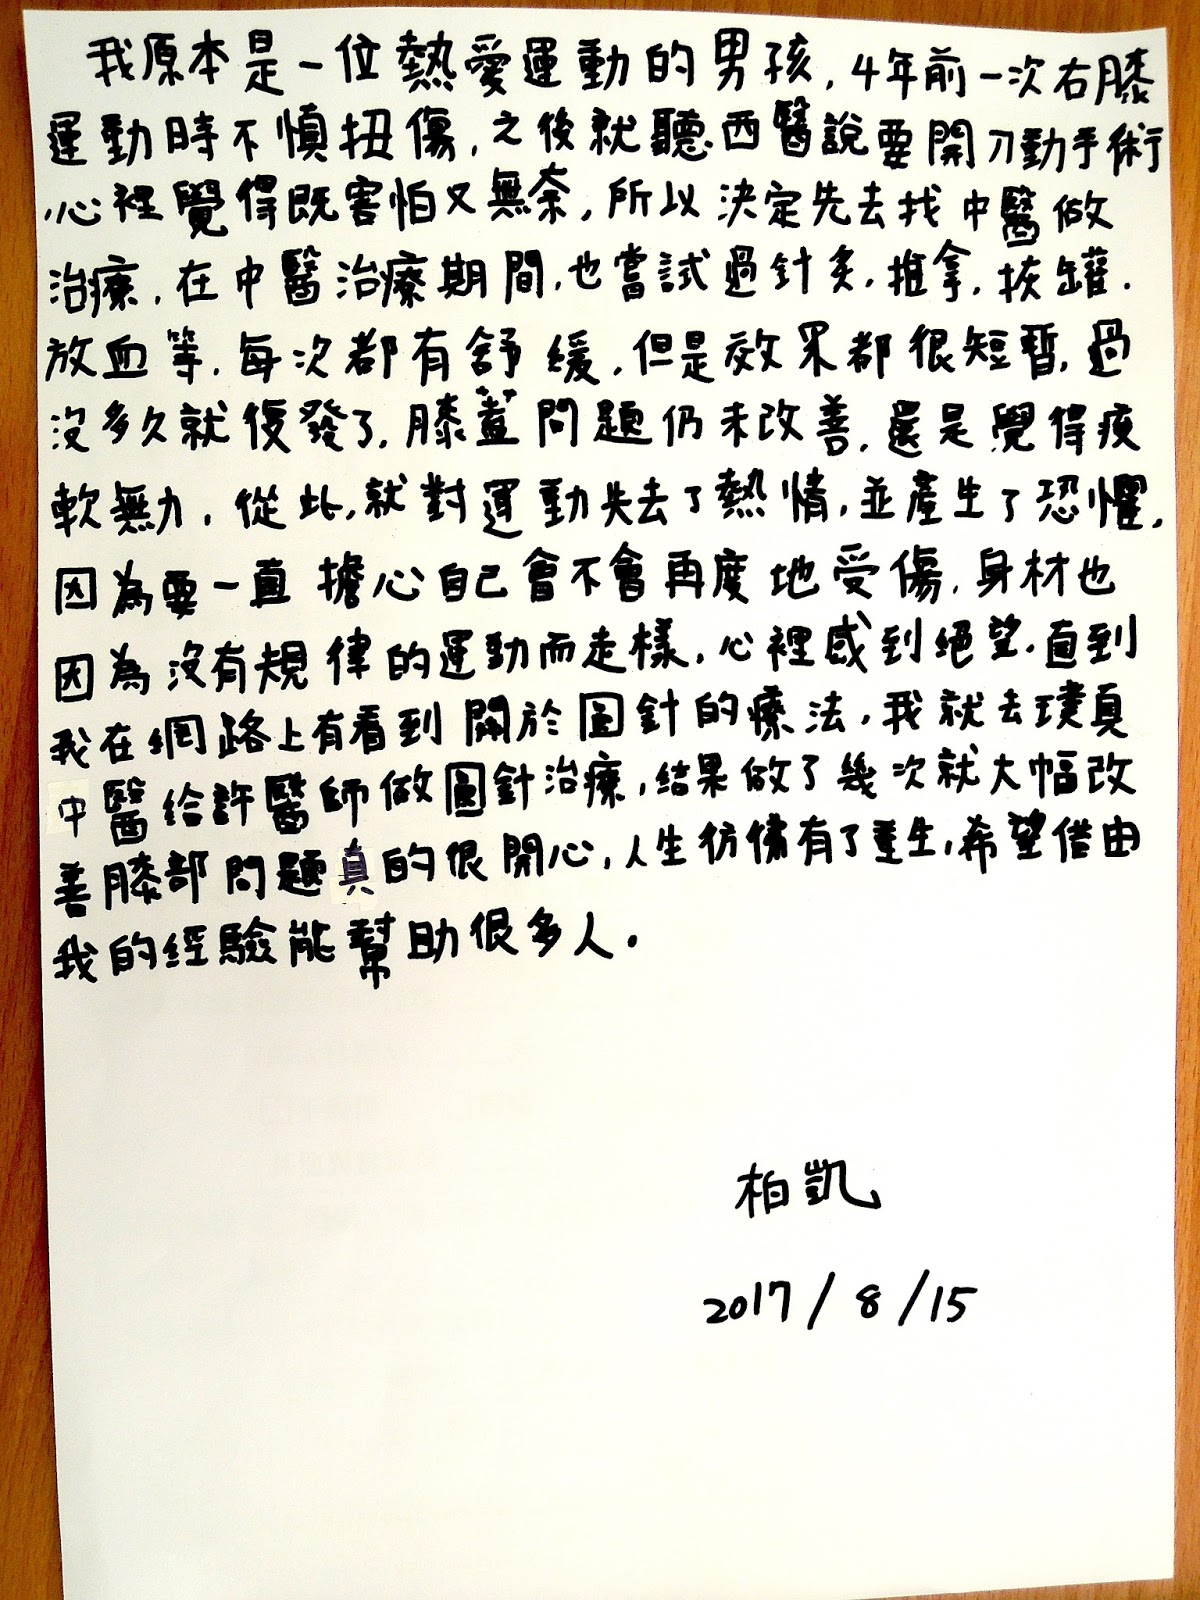 我原本是一位熱愛運動的男孩，4年前一次右膝
運動時不慎扭傷，之後就聽西醫說要開刀動手術
心裡覺得既害怕又無奈，所以決定先去找中醫做
治療，在中醫治療期間，也嘗試過針灸，推拿，拔罐，
放血等，每次都有舒緩，但是效果都很短暫，過
沒多久就復發了，膝蓋問題仍未改善，還是覺得痠
軟無力，從此，就對運動失去了熱情，並產生了恐懼，
因為要一直擔心自己會不會再度地受傷，身材也
因為沒有規律的運動而走樣，心裡感到絕望，直到
我在網路上有看到關於圓針的療法，我就去璞真
中醫給許醫師做圓針治療，結果做了幾次就大幅改
善膝部問題真的很開心，人生彷彿有了重生，希望借由
我的經驗能幫助很多人。
柏凱
2017/8/15